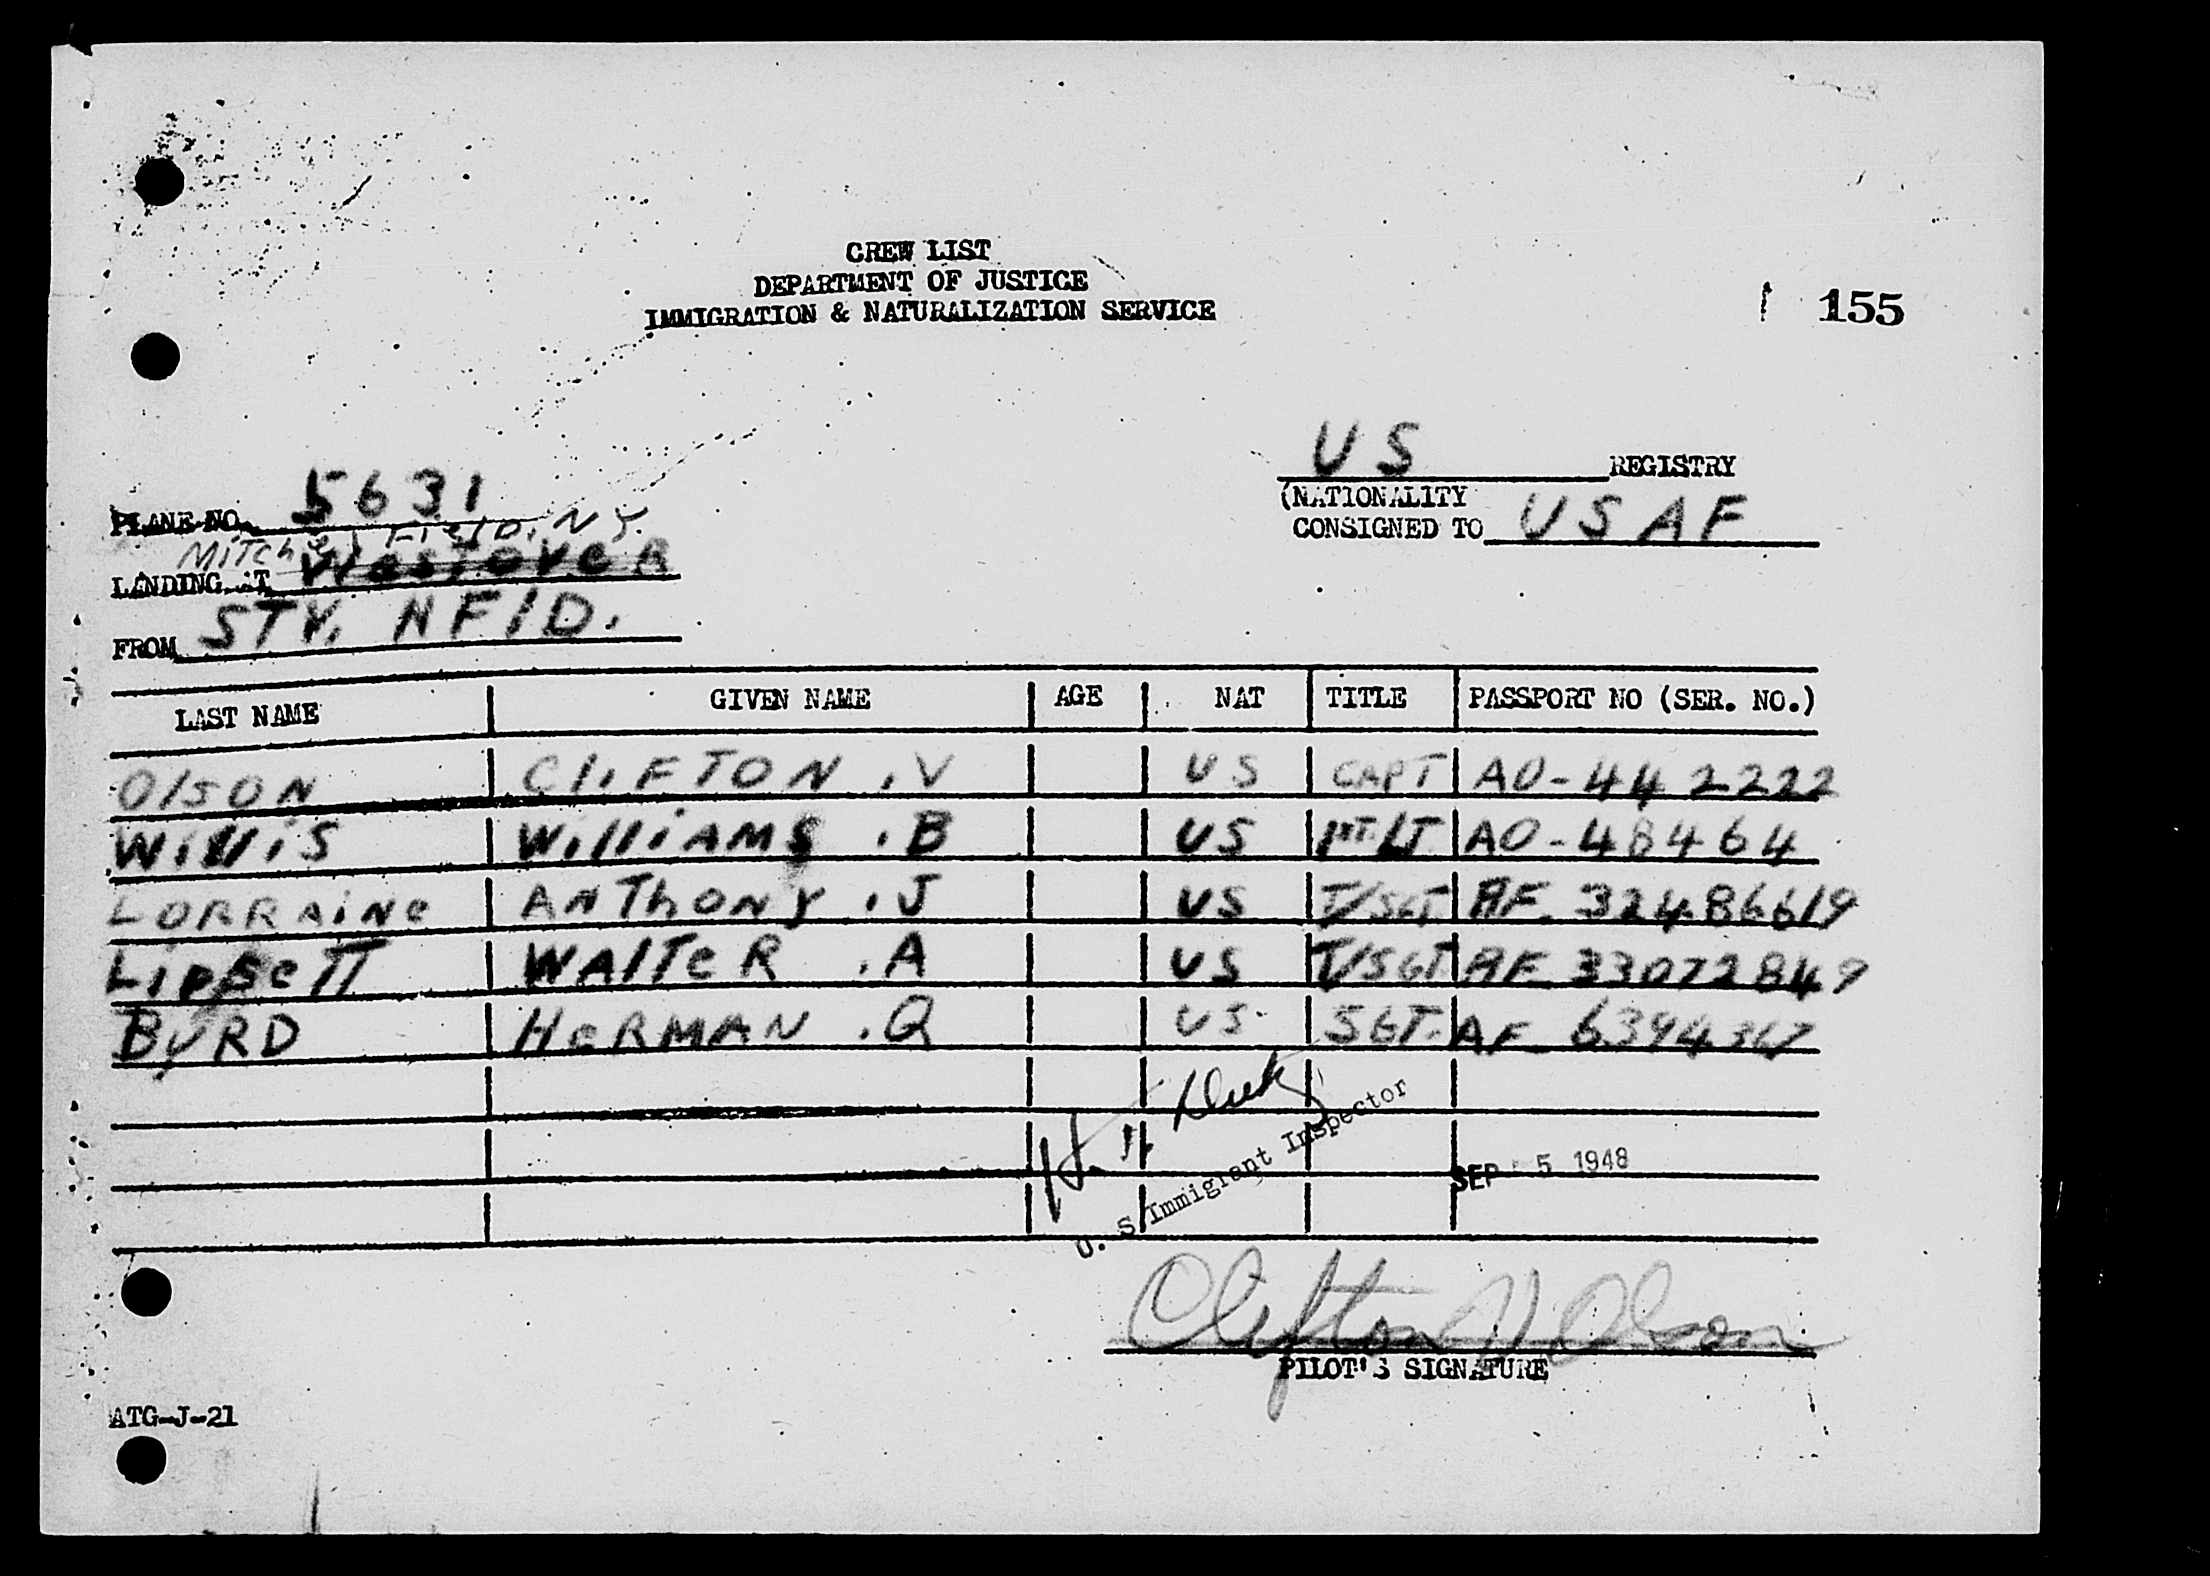 CREW LIST
DEPARTMENT OF JUSTICE
IMMIGRATION & NATURALIZATION SERVICE
155
US REGISTRY
(NATIONALITY
CONSIGNED TO USAF
PLANE NO. 5631
Mitchel Field, NY.
LANDING AT Westover
FROM STV. NFlD.
LAST NAME GIVEN NAME AGE NAT TITLE PASSPORT NO (SER. NO.)
OlsoN CliFTON .V US CAPT AO-442222
WilliS WilliAMS .B US 1ST LT AO-48464
LORRAiNe ANThONY .J US T/SGT AF 32486619
LipseTT WAlTeR .A US T/SGT. AF 33072849
BYRD HeRMAN .Q US SGT. AF
U. S. Immigrant Inspector
SEP 5 1948
Clifton V Olson
PILOT'S SIGNATURE
ATG-J-21